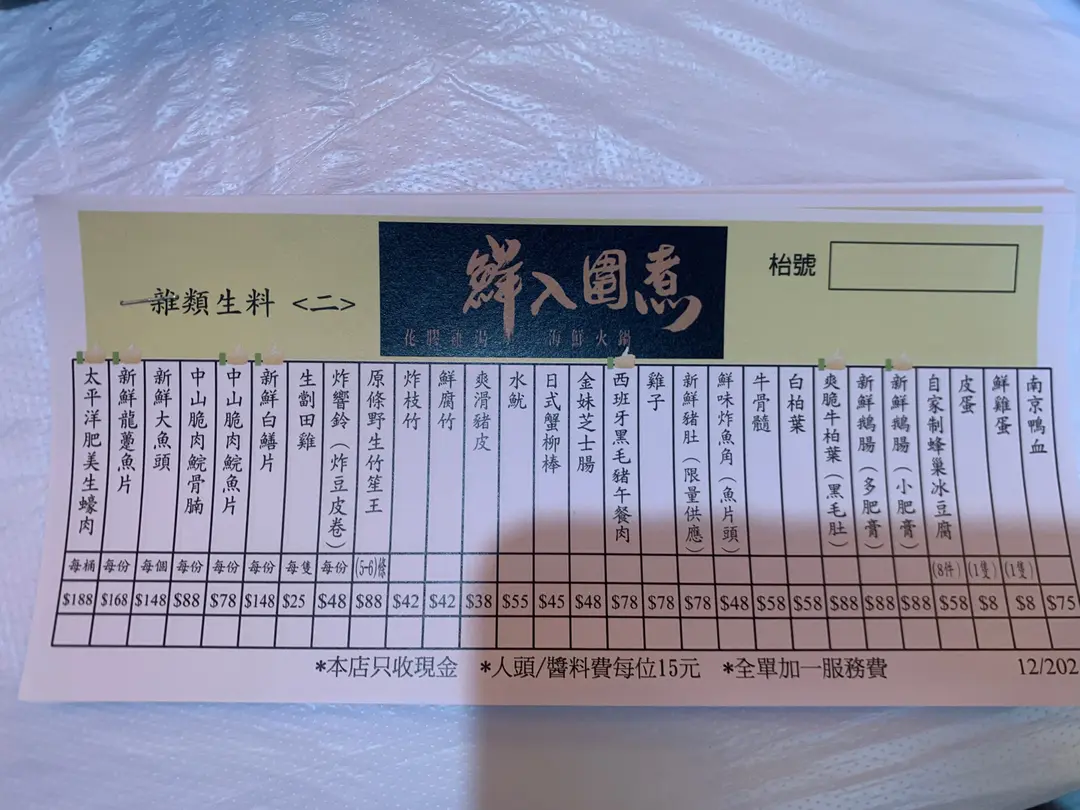 雜類生料 <二>
鮮入圍煮
海鮮火鍋
枱號
南京鴨血 $75
鮮雞蛋 (1隻) $8
皮蛋 (1隻) $8
自家制蜂巢冰豆腐 (8件) $58
新鮮鵝腸(小肥膏) $88
新鮮鵝腸(多肥膏) $88
爽脆牛柏葉(黑毛肚) $88
白柏葉 $58
牛骨髓 $58
鮮味炸魚角(魚片頭) $48
新鮮豬肚(限量供應) $78
雞子 $78
西班牙黑毛豬午餐肉 $78
金妹芝士腸 $48
日式蟹柳棒 $45
水魷 $55
爽滑豬皮 $38
鮮腐竹 $42
炸枝竹 $42
原條野生竹笙王 (5-6)條 $88
炸響鈴(炸豆皮卷) 每份 $48
生劏田雞 每隻 $25
新鮮白鱔片 每份 $148
中山脆肉鯇魚片 每份 $78
中山脆肉鯇骨腩 每份 $88
新鮮大魚頭 每個 $148
新鮮龍躉魚片 每份 $168
太平洋肥美生蠔肉 每桶 $188
*本店只收現金 *人頭/醬料費每位15元 *全單加一服務費
12/202